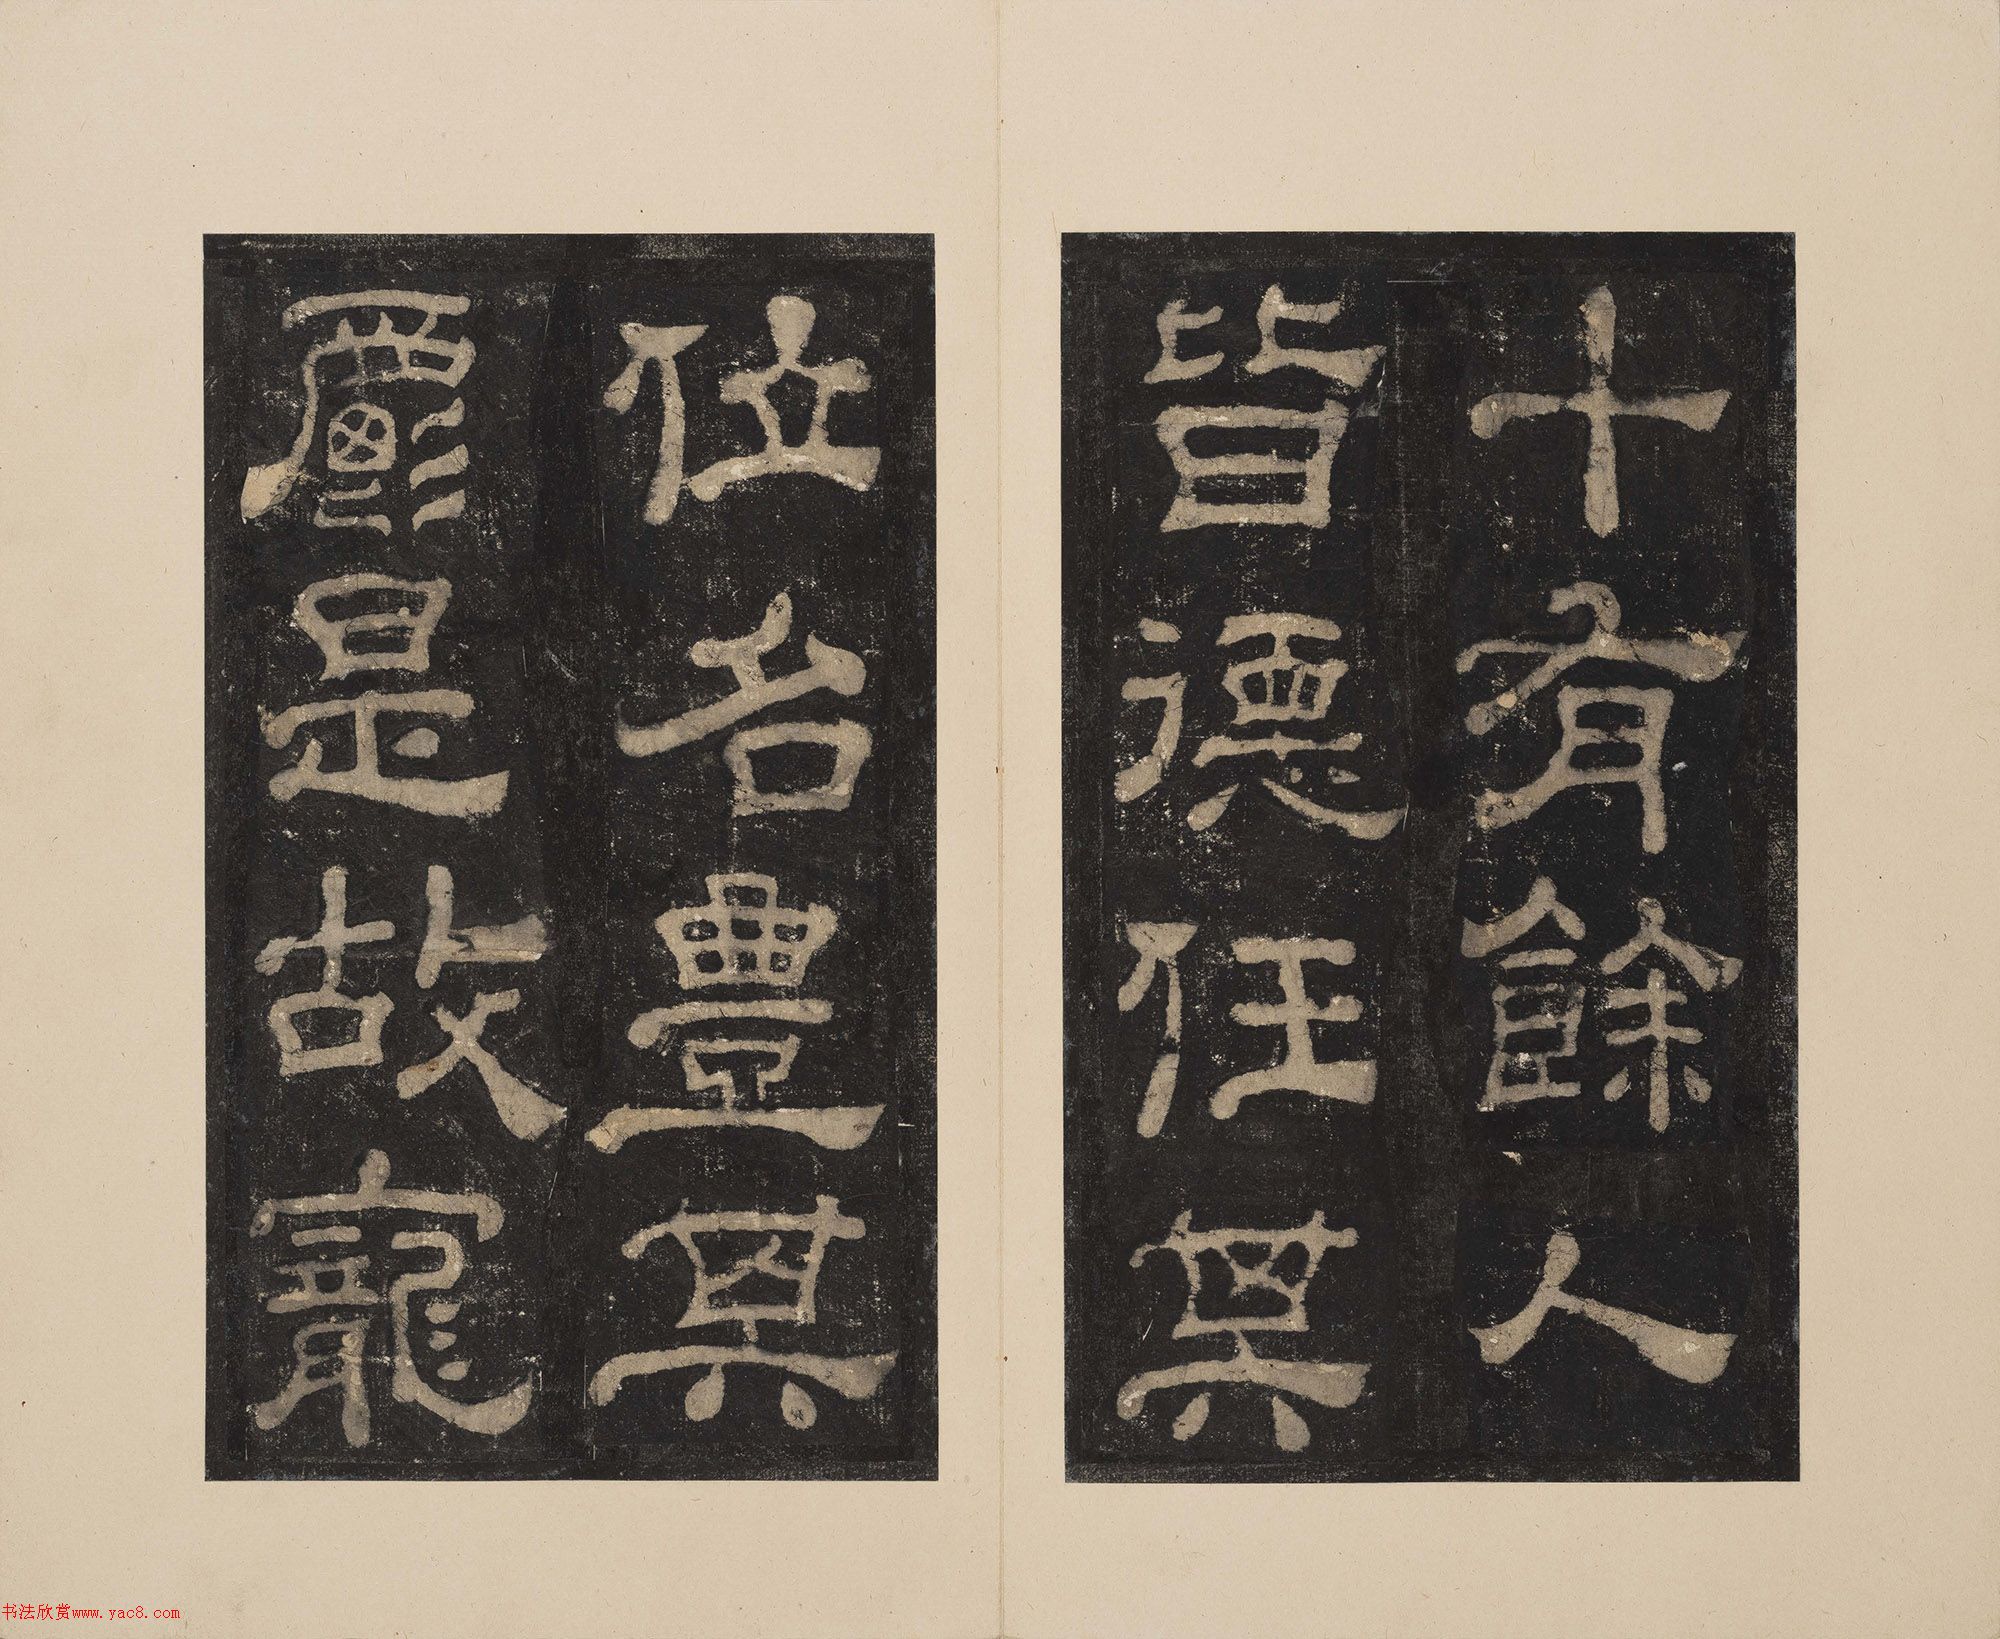 十有餘人
皆德任其
位名豐其
爵是故寵
书法欣赏www.yac8.com